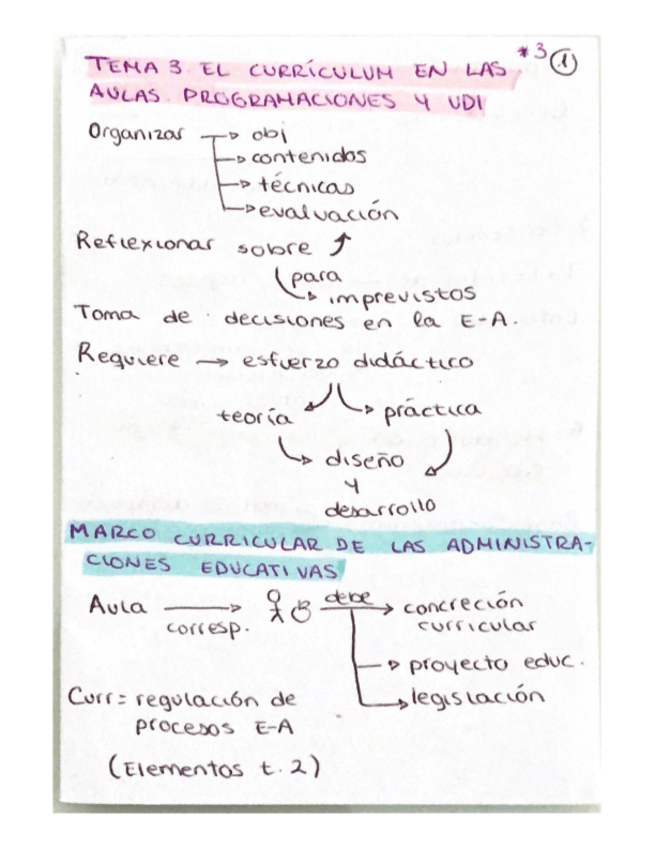 *3 ①
TEMA 3. EL CURRÍCULUM EN LAS
AULAS. PROGRAMACIONES Y UDI
Organizar → obj
→ contenidos
→ técnicas
→ evaluación
Reflexionar sobre ↑
para
→ imprevistos
Toma de decisiones en la E-A.
Requiere → esfuerzo didáctico
teoría → práctica
→ diseño
y
desarrollo
MARCO CURRICULAR DE LAS ADMINISTRA-
CIONES EDUCATIVAS
Aula → debe → concreción
corresp. curricular
→ proyecto educ.
→ legislación
Curr = regulación de
procesos E-A
(Elementos t. 2)